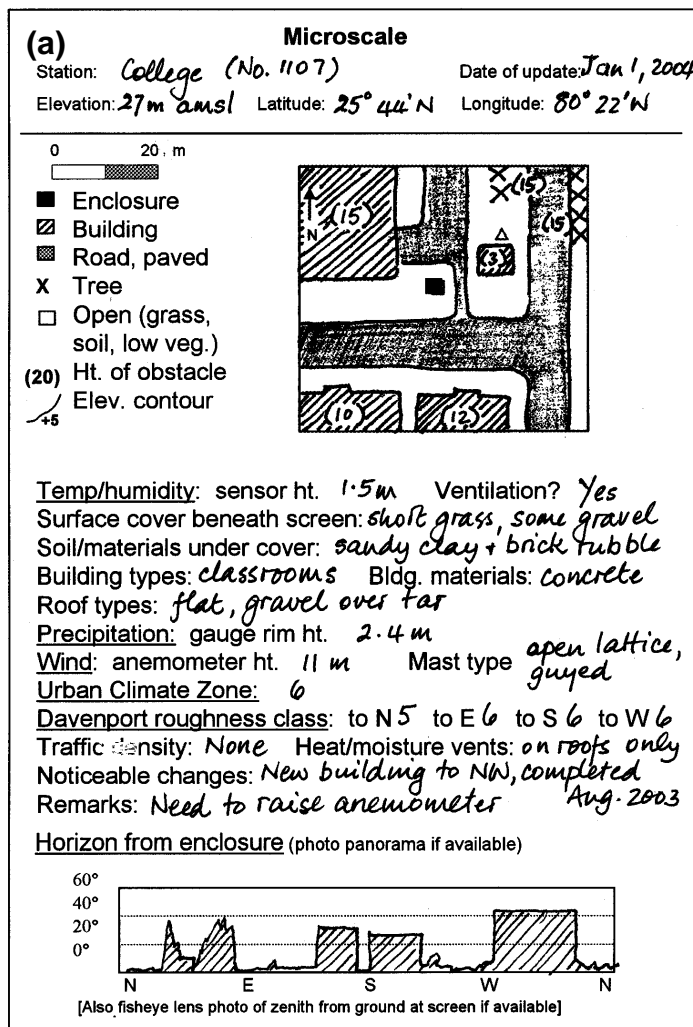 (a) Microscale
Station: College (No. 1107) Date of update: Jan 1, 2004
Elevation: 27m amsl Latitude: 25° 44'N Longitude: 80° 22'W
0 20, m
Enclosure
Building
Road, paved
X Tree
Open (grass,
soil, low veg.)
(20) Ht. of obstacle
Elev. contour
+5
(15)
N
(15)
(15)
(3)
(10)
(12)
Temp/humidity: sensor ht. 1.5m Ventilation? Yes
Surface cover beneath screen: short grass, some gravel
Soil/materials under cover: sandy clay + brick rubble
Building types: classrooms Bldg. materials: concrete
Roof types: flat, gravel over tar
Precipitation: gauge rim ht. 2.4 m
Wind: anemometer ht. 11 m Mast type open lattice,
guyed
Urban Climate Zone: 6
Davenport roughness class: to N 5 to E 6 to S 6 to W 6
Traffic density: None Heat/moisture vents: on roofs only
Noticeable changes: New building to NW, completed
Remarks: Need to raise anemometer Aug. 2003
Horizon from enclosure (photo panorama if available)
60°
40°
20°
0°
N E S W N
[Also fisheye lens photo of zenith from ground at screen if available]